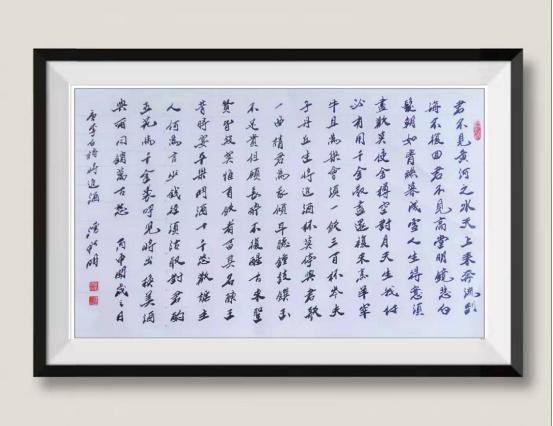 君不見黃河之水天上來奔流到
海不復回君不見高堂明鏡悲白
髮朝如青絲暮成雪人生得意須
盡歡莫使金樽空對月天生我材
必有用千金散盡還復來烹羊宰
牛且為樂會須一飲三百杯岑夫
子丹丘生將進酒杯莫停與君歌
一曲請君為我傾耳聽鐘鼓饌玉
不足貴但願長醉不復醒古來聖
賢皆寂寞惟有飲者留其名陳王
昔時宴平樂斗酒十千恣歡謔主
人何為言少錢徑須沽取對君酌
五花馬千金裘呼兒將出換美酒
與爾同銷萬古愁 丙申之日
唐李白詩將進酒